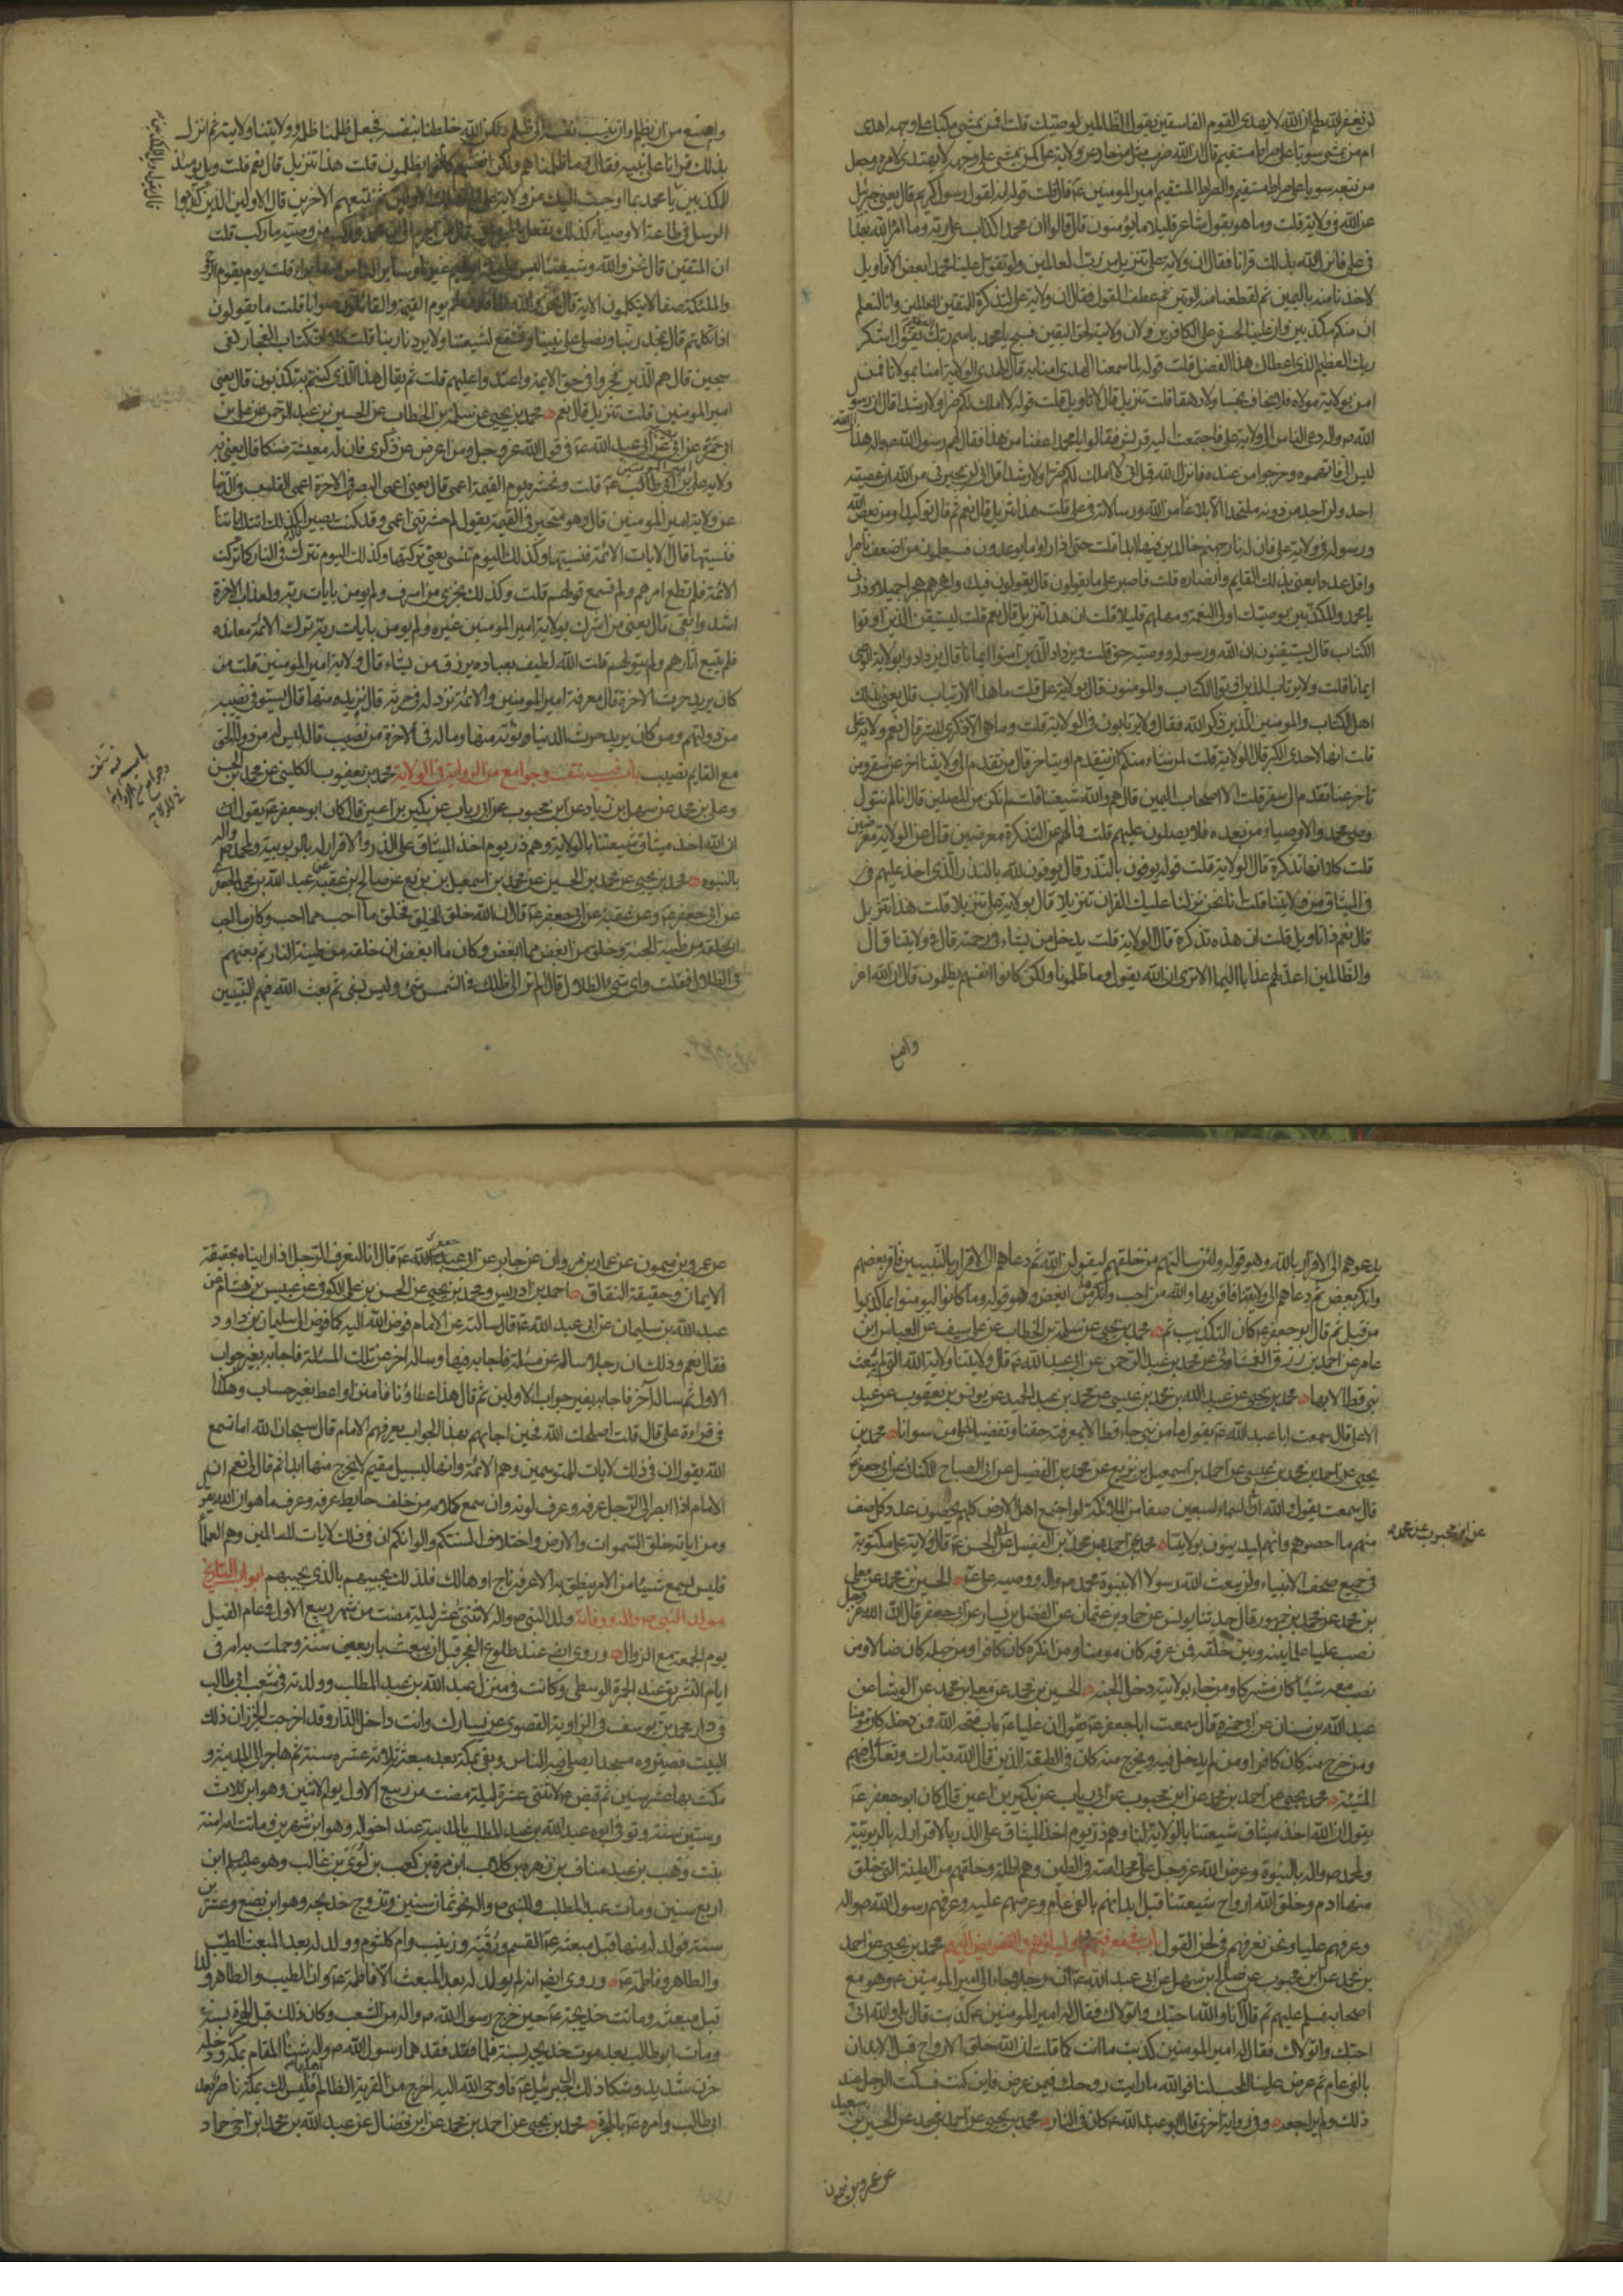 لن يغفر الله لهم ان الله لا يهدى القوم الفاسقين يقول الظالمين لوصيتك قلت افمن يمشى مكبا على وجهه اهدى
ام من يمشى سويا على صراط مستقيم قال ان الله ضرب مثل من حاد عن ولاية على كمن يمشى على وجهه لا يهتدى لامره وجعل
من تبعه سويا على صراط مستقيم والصراط المستقيم امير المومنين عه قال قلت قوله انه لقول رسول كريم قال يعنى جبرئيل
عن الله فى ولاية قلت وما هو بقول شاعر قليلا ما يؤمنون قال قالوا ان محمدا كذاب على ربه وما امر الله بهذا
فى على فانزل الله بذلك قرانا فقال ان ولاية على تنزيل من رب العالمين ولو تقول علينا محمد بعض الاقاويل
لاخذنا منه باليمين ثم لقطعنا منه الوتين ثم عطف القول فقال ان ولاية على لتذكرة للمتقين للعالمين وانا لنعلم
ان منكم مكذبين وان عليا لحسرة على الكافرين وان ولايته لحق اليقين فسبح يا محمد باسم ربك يقول اشكر
ربك العظيم الذى اعطاك هذا الفضل قلت قوله لما سمعنا الهدى امنا به قال الهدى الولاية امنا بمولانا فمن
امن بولاية مولاه فلا يخاف بخسا ولا رهقا قلت تنزيل قال لا تاويل قلت قوله لا املك لكم ضرا ولا رشدا قال ان رسول
الله ص واله دعى الناس الى ولاية على فاجتمعت اليه قريش فقالوا يا محمد اعفنا من هذا فقال لهم رسول الله ص واله هذا
ليس الى فاتهموه وخرجوا من عنده فانزل الله قل انى لا املك لكم ضرا ولا رشدا قل انى لن يجيرنى من الله ان عصيته
احد ولن اجد من دونه ملتحدا الا بلاغا من الله ورسالاته فى على قلت هذا تنزيل قال نعم ثم قال توكيدا ومن يعص الله
ورسوله فى ولاية على فان له نار جهنم خالدين فيها ابدا قلت حتى اذا راوا ما يوعدون فسيعلمون من اضعف ناصرا
واقل عددا يعنى بذلك القايم وانصاره قلت فاصبر على ما يقولون قال يقولون فيك واهجرهم هجرا جميلا وذرنى
يا محمد والمكذبين بوصيتك اولى النعمة ومهلهم قليلا قلت ان هذا تنزيل قال نعم قلت ليستيقن الذين اوتوا
الكتاب قال يستيقنون ان الله ورسوله ووصيه حق قلت ويزداد الذين آمنوا ايمانا قال يزدادو بولاية الوصى
ايمانا قلت ولا يرتاب الذين اوتوا الكتاب والمومنون قال بولاية على قلت ما هذا الارتياب قال يعنى بذلك
اهل الكتاب والمومنين الذين ذكر الله فقال ولا يرتابون فى الولاية قلت وما هى الا ذكرى للبشر قال نعم ولاية على
قلت انها لاحدى الكبر قال الولاية قلت لمن شاء منكم ان يتقدم او يتاخر قال من تقدم الى ولايتنا اخر عن سقر ومن
تاخر عنا تقدم الى سقر قلت الا اصحاب اليمين قال هم والله شيعتنا قلت لم نكن من المصلين قال انا لم نتول
وصى محمد والاوصياء من بعده فلا يصلون عليهم قلت فما لهم عن التذكرة معرضين قال عن الولاية معرضين
قلت كلا انها تذكرة قال الولاية قلت قوله يوفون بالنذر قال يوفون لله بالنذر الذى اخذ عليهم فى
فى الميثاق من ولايتنا قلت انا نحن نزلنا عليك القران تنزيلا قال بولاية على تنزيلا قلت هذا تنزيل
قال نعم ذا تاويل قلت ان هذه تذكرة قال الولاية قلت يدخل من يشاء فى رحمته قال فى ولايتنا قال
والظالمين اعد لهم عذابا اليما الا ترى ان الله يقول وما ظلمونا ولكن كانوا انفسهم يظلمون قال ان الله اعز
وامنع
وامنع من ان يظلم وان ينسب نفسه الى ظلم ولكن الله خلطنا بنفسه فجعل ظلمنا ظلمه وولايتنا ولايته ثم انزل
بذلك قرانا على نبيه فقال وما ظلمناهم ولكن كانوا انفسهم يظلمون قلت هذا تنزيل قال نعم قلت ويل يومئذ
للمكذبين يا محمد بما اوحيت اليك من ولاية على الم نهلك الاولين ثم نتبعهم الآخرين قال الاولين الذين كذبوا
الرسل فى طاعة الاوصياء كذلك نفعل بالمجرمين قال من اجرم الى ال محمد وركب من وصيه ما ركب قلت
ان المتقين قال نحن والله وشيعتنا ليس على ملة ابراهيم غيرنا وساير الناس منها براء قلت يوم يقوم الروح
والملئكة صفا لا يتكلمون الاية قال نحن والله الماذون لهم يوم القيمة والقائلون صوابا قلت ما تقولون
اذا تكلمتم قال نمجد ربنا ونصلى على نبينا ونشفع لشيعتنا ولا يردنا ربنا قلت كلا ان كتاب الفجار لفى
سجين قال هم الذين فجروا فى حق الائمة واعتدوا عليهم قلت ثم يقال هذا الذى كنتم به تكذبون قال يعنى
امير المومنين قلت تنزيل قال نعم محمد بن يحيى عن سلمة بن الخطاب عن الحسين بن عبد الرحمن عن على بن
ابى حمزة عن ابى بصير عن ابى عبد الله عه فى قول الله عز وجل ومن اعرض عن ذكرى فان له معيشة ضنكا قال يعنى به
ولاية على بن ابى طالب عه قلت ونحشره يوم القيمة اعمى قال يعنى اعمى البصر فى الاخرة اعمى القلب فى الدنيا
عن ولاية امير المومنين قال وهو متحير فى القيمة يقول لم حشرتنى اعمى وقد كنت بصيرا قال كذلك اتتك اياتنا
فنسيتها قال الايات الائمة فنسيتها وكذلك اليوم تنسى يعنى تركتها وكذلك اليوم تترك فى النار كما تركت
الائمة فلم تطع امرهم ولم تسمع قولهم قلت وكذلك نجزى من اسرف ولم يومن بايات ربه ولعذاب الاخرة
اشد وابقى قال يعنى من اشرك بولاية امير المومنين غيره ولم يومن بايات ربه ترك الائمة معانده
فلم يتبع آثارهم ولم يتولهم قلت الله لطيف بعباده يرزق من يشاء قال ولاية امير المومنين قلت من
كان يريد حرث الاخرة قال معرفة امير المومنين والائمة نزد له فى حرثه قال نزيده منها قال يستوفى نصيبه
من دولتهم ومن كان يريد حرث الدنيا نؤته منها وما له فى الاخرة من نصيب قال ليس له من دولة الحق
مع القايم نصيب باب فيه نتف وجوامع من الرواية فى الولاية محمد بن يعقوب الكلينى عن محمد بن الحسن
وعلى بن محمد عن سهل بن زياد عن ابن محبوب عن ابن رياب عن بكير بن اعين قال كان ابو جعفر عه يقول ان
ان الله اخذ ميثاق شيعتنا بالولاية وهم ذر يوم اخذ الميثاق على الذر والاقرار له بالربوبية ولمحمد ص واله
بالنبوه محمد بن يحيى عن محمد بن الحسين عن محمد بن اسمعيل بن بزيع عن صالح بن عقبة عن عبد الله بن محمد الجعفرى
عن ابى جعفر عه وعن عقبة عن ابى جعفر عه قال ان الله خلق الخلق فخلق ما احب مما احب وكان ما احب
ان خلقه من طينة الجنة وخلق من ابغض مما ابغض وكان ما ابغض ان خلقه من طينة النار ثم بعثهم
فى الظلال فقلت واى شئ الظلال قال الم تر الى ظلك فى الشمس شئ وليس بشئ ثم بعث الله فيهم النبيين
باب فيه نتف
وجوامع من الرواية
فى الولاية
يدعوهم الى الاقرار بالله وهو قوله ولئن سالتهم من خلقهم ليقولن الله ثم دعاهم الى الاقرار بالنبيين فاقر بعضهم
وانكر بعض ثم دعاهم الى ولايتنا فاقر بها والله من احب وانكرها من ابغض وهو قوله وما كانوا ليومنوا بما كذبوا
من قبل ثم قال ابو جعفر عه كان التكذيب ثم محمد بن يحيى عن سلمة بن الخطاب عن على بن سيف عن العباس ابن
عامر عن احمد بن رزق الغمشانى عن محمد بن عبد الرحمن عن ابى عبد الله عه قال ولايتنا ولاية الله التى لم يبعث
نبى قط الا بها محمد بن يحيى عن عبد الله بن محمد بن عيسى عن محمد بن عبد الحميد عن يونس بن يعقوب عن عبد
الاعلى قال سمعت ابا عبد الله عه يقول ما من نبى جاء قط الا بمعرفة حقنا وتفضيلنا على من سوانا محمد بن
يحيى عن احمد بن محمد بن عيسى عن محمد بن اسمعيل بن بزيع عن محمد بن الفضيل عن ابى الصباح الكنانى عن ابى جعفر عه
قال سمعته يقول والله ان فى السماء لسبعين صفا من الملائكة لو اجتمع اهل الارض كلهم يحصون عدد كل صف
منهم ما احصوهم وانهم ليدينون بولايتنا محمد عن احمد عن محمد بن الفضيل عن ابى الحسن عه قال ولاية على مكتوبة
عن ابن محبوب عن محمد
فى جميع صحف الانبياء ولن يبعث الله رسولا الا بنبوة محمد ص واله ووصيه على عه الحسين بن محمد عن معلى
بن محمد عن محمد بن جمهور قال حدثنا يونس عن حماد بن عثمان عن الفضيل بن يسار عن ابى جعفر قال ان الله عز وجل
نصب عليا علما بينه وبين خلقه فمن عرفه كان مومنا ومن انكره كان كافرا ومن جهله كان ضالا ومن
نصب معه شيئا كان مشركا ومن جاء بولايته دخل الجنة الحسين بن محمد عن معلى بن محمد عن الوشا عن
عبد الله بن سنان عن ابى حمزه قال سمعت ابا جعفر عه يقول ان عليا عه باب فتحه الله فمن دخله كان مومنا
ومن خرج منه كان كافرا ومن لم يدخل فيه ولم يخرج منه كان فى الطبقة الذين قال الله تبارك وتعالى فيهم
المشيئة محمد بن يحيى عن احمد بن محمد عن ابن محبوب عن ابن رياب عن بكير بن اعين قال كان ابو جعفر عه
يقول ان الله اخذ ميثاق شيعتنا بالولاية لنا وهم ذر يوم اخذ الميثاق على الذر بالاقرار له بالربوبية
ولمحمد ص واله بالنبوة وعرض الله عز وجل على محمد امته فى الطين وهم اظلة وخلقهم من الطينة التى خلق
منها ادم وخلق الله ارواح شيعتنا قبل ابدانهم بالفى عام وعرضهم عليه وعرفهم رسول الله ص واله
وعرفهم عليا ونحن نعرفهم فى لحن القول باب فى معرفتهم اولياءهم والتفويض اليهم محمد بن يحيى عن احمد
بن محمد عن ابن محبوب عن صالح بن سهل عن ابى عبد الله عه ان رجلا جاء الى امير المومنين عه وهو مع
اصحابه فسلم عليهم ثم قال انا والله احبك واتولاك فقال له امير المومنين عه كذبت قال بلى والله انى
احبك واتولاك فقال له امير المومنين كذبت ما انت كما قلت ان الله خلق الارواح قبل الابدان
بالفى عام ثم عرض علينا المحب لنا فوالله ما رايت روحك فيمن عرض فاين كنت فسكت الرجل عند
ذلك ولم يراجعه وفى رواية اخرى قال ابو عبد الله عه كان فى النار محمد بن يحيى عن احمد بن محمد عن الحسين بن سعيد
عن عمرو بن ميمون
عن عمرو بن ميمون عن عمار بن مروان عن جابر عن ابى جعفر عه قال انا لنعرف الرجل اذا رايناه بحقيقة
الايمان وحقيقة النفاق احمد بن ادريس ومحمد بن يحيى عن الحسن بن على الكوفى عن عبيس بن هشام عن
عبد الله بن سليمان عن ابى عبد الله عه قال سالته عن الامام فوض الله اليه كما فوض الى سليمان بن داود
فقال نعم وذلك ان رجلا ساله عن مسئلة فاجابه فيها وساله اخر عن تلك المسئلة فاجابه بغير جواب
الاول ثم ساله آخر فاجابه بغير جواب الاولين ثم قال هذا عطاؤنا فامنن او اعط بغير حساب وهكذا
فى قراءة على قال قلت اصلحك الله فحين اجابهم بهذا الجواب يعرفهم الامام قال سبحان الله اما تسمع
الله يقول ان فى ذلك لايات للمتوسمين وهم الائمة وانها لبسبيل مقيم لا يخرج منها ابدا ثم قال لى نعم ان
الامام اذا ابصر الى الرجل عرفه وعرف لونه وان سمع كلامه من خلف حايط عرفه وعرف ما هو ان الله يقول
ومن اياته خلق السموات والارض واختلاف السنتكم والوانكم ان فى ذلك لايات للعالمين وهم العلماء
فليس يسمع شيئا من الامر ينطق به الا عرفه ناج او هالك فلذلك يجيبهم بالذى يجيبهم ابواب التاريخ
مولد النبى ص واله ووفاته ولد النبى ص واله لاثنتى عشر ليلة مضت من شهر ربيع الاول فى عام الفيل
يوم الجمعة مع الزوال وروى ايضا عند طلوع الفجر قبل ان يبعث باربعين سنة وحملت به امه فى
ايام التشريق عند الجمرة الوسطى وكانت فى منزل عبد الله بن عبد المطلب وولدته فى شعب ابى طالب
فى دار محمد بن يوسف فى الزاوية القصوى عن يسارك وانت داخل الدار وقد اخرجت الخيزران ذلك
البيت فصيروه مسجدا يصلى فيه الناس وبقى بمكة بعد مبعثه ثلاثة عشره سنة ثم هاجر الى المدينة و
مكث بها عشر سنين ثم قبض ص لاثنتى عشرة ليلة مضت من ربيع الاول يوم الاثنين وهو ابن ثلاث
وستين سنة وتوفى ابوه عبد الله بن عبد المطلب بالمدينة عند اخواله وهو ابن شهرين وماتت امه امنة
بنت وهب بن عبد مناف بن زهره بن كلاب ابن مرة بن كعب بن لوى بن غالب وهو عليهم ابن
اربع سنين ومات عبد المطلب وللنبى ص واله نحو ثمان سنين وتزوج خديجه وهو ابن بضع وعشرين
سنة فولد له منها قبل مبعثه عه القسم ورقية وزينب وام كلثوم وولد له بعد المبعث الطيب
والطاهر وفاطمة عه وروى ايضا انه لم يولد له بعد المبعث الا فاطمة عه وان الطيب والطاهر ولدا
قبل مبعثه وماتت خديجة عه حين خرج رسول الله ص واله من الشعب وكان ذلك قبل الهجرة بسنة
ومات ابو طالب بعد موت خديجه بسنة فلما فقدهما رسول الله ص واله شنا المقام بمكة ودخله
حزن شديد وشكا ذلك الى جبرئيل عه فاوحى الله اليه اخرج من القرية الظالم اهلها فليس لك بمكة ناصر بعد
ابى طالب وامره عه بالهجرة محمد بن يحيى عن احمد بن محمد عن ابن فضال عن عبد الله بن محمد ابن اخى حماد